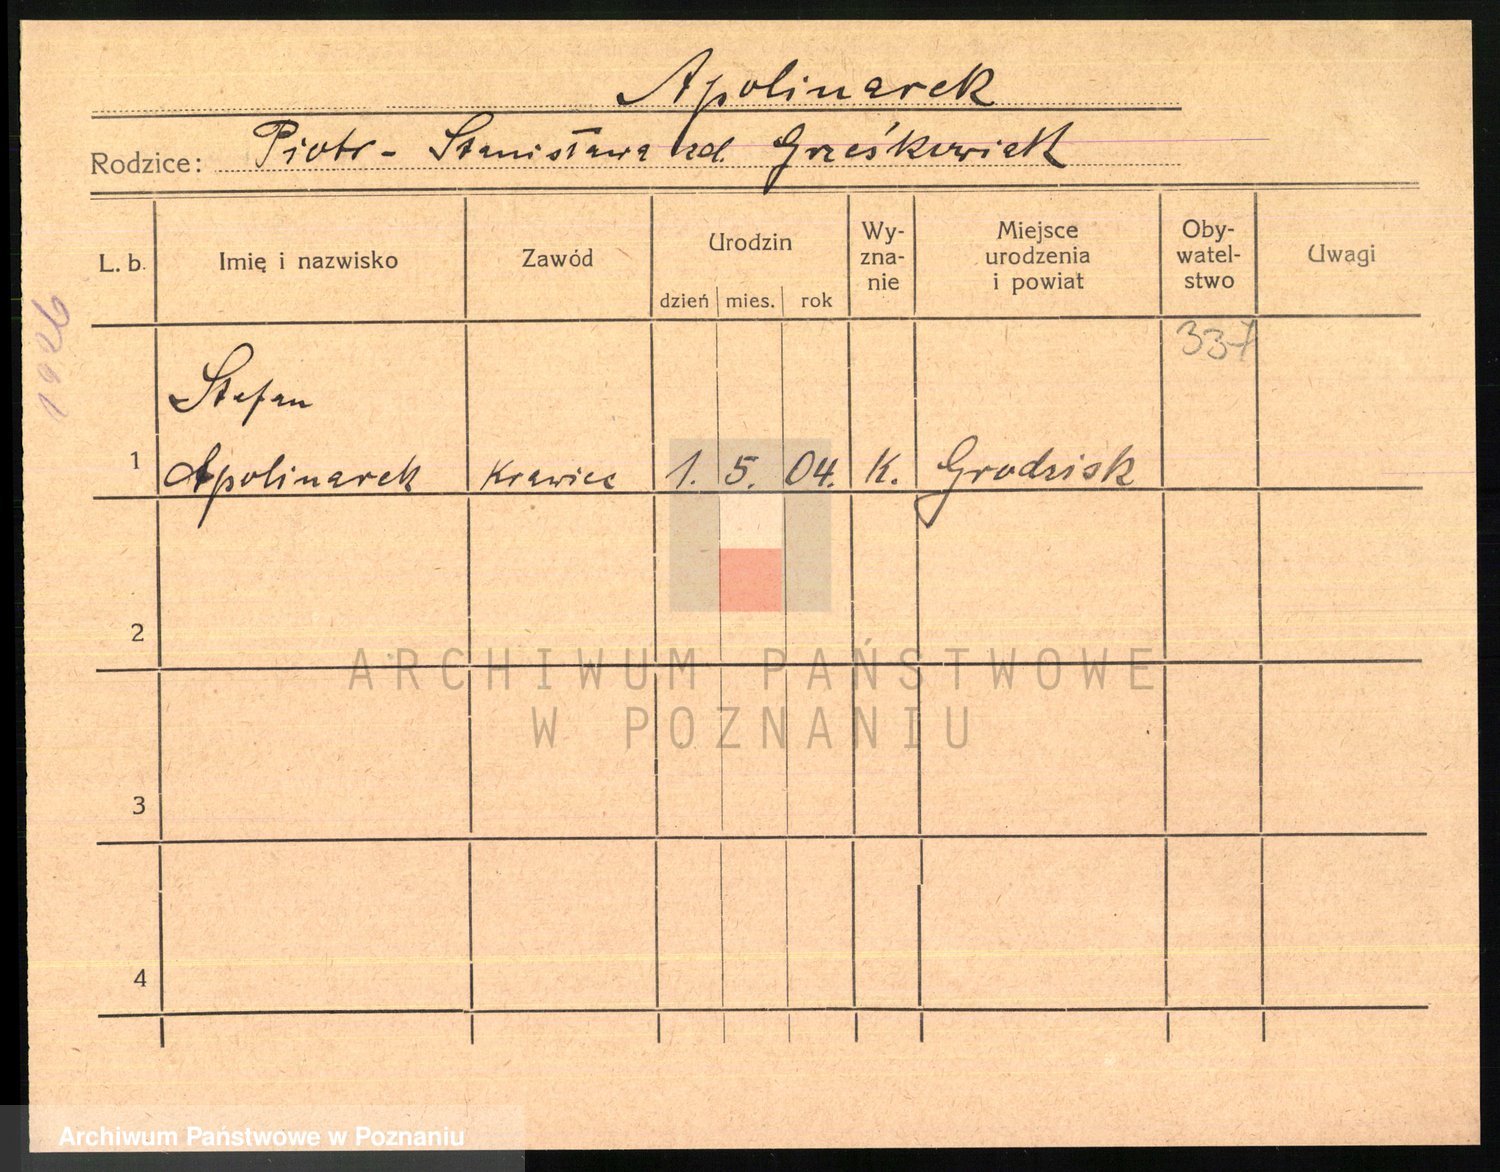 Apolinarek
Rodzice: Piotr - Stanisława zd. Grześkowiak
L. b. Imię i nazwisko Zawód Urodzin Wy- Miejsce Oby- Uwagi
zna- urodzenia watel-
nie i powiat stwo
dzień mies. rok
1926
337
Stefan
1 Apolinarek Krawiec 1. 5. 04. K. Grodzisk
2
ARCHIWUM PAŃSTWOWE
W POZNANIU
3
4
Archiwum Państwowe w Poznaniu